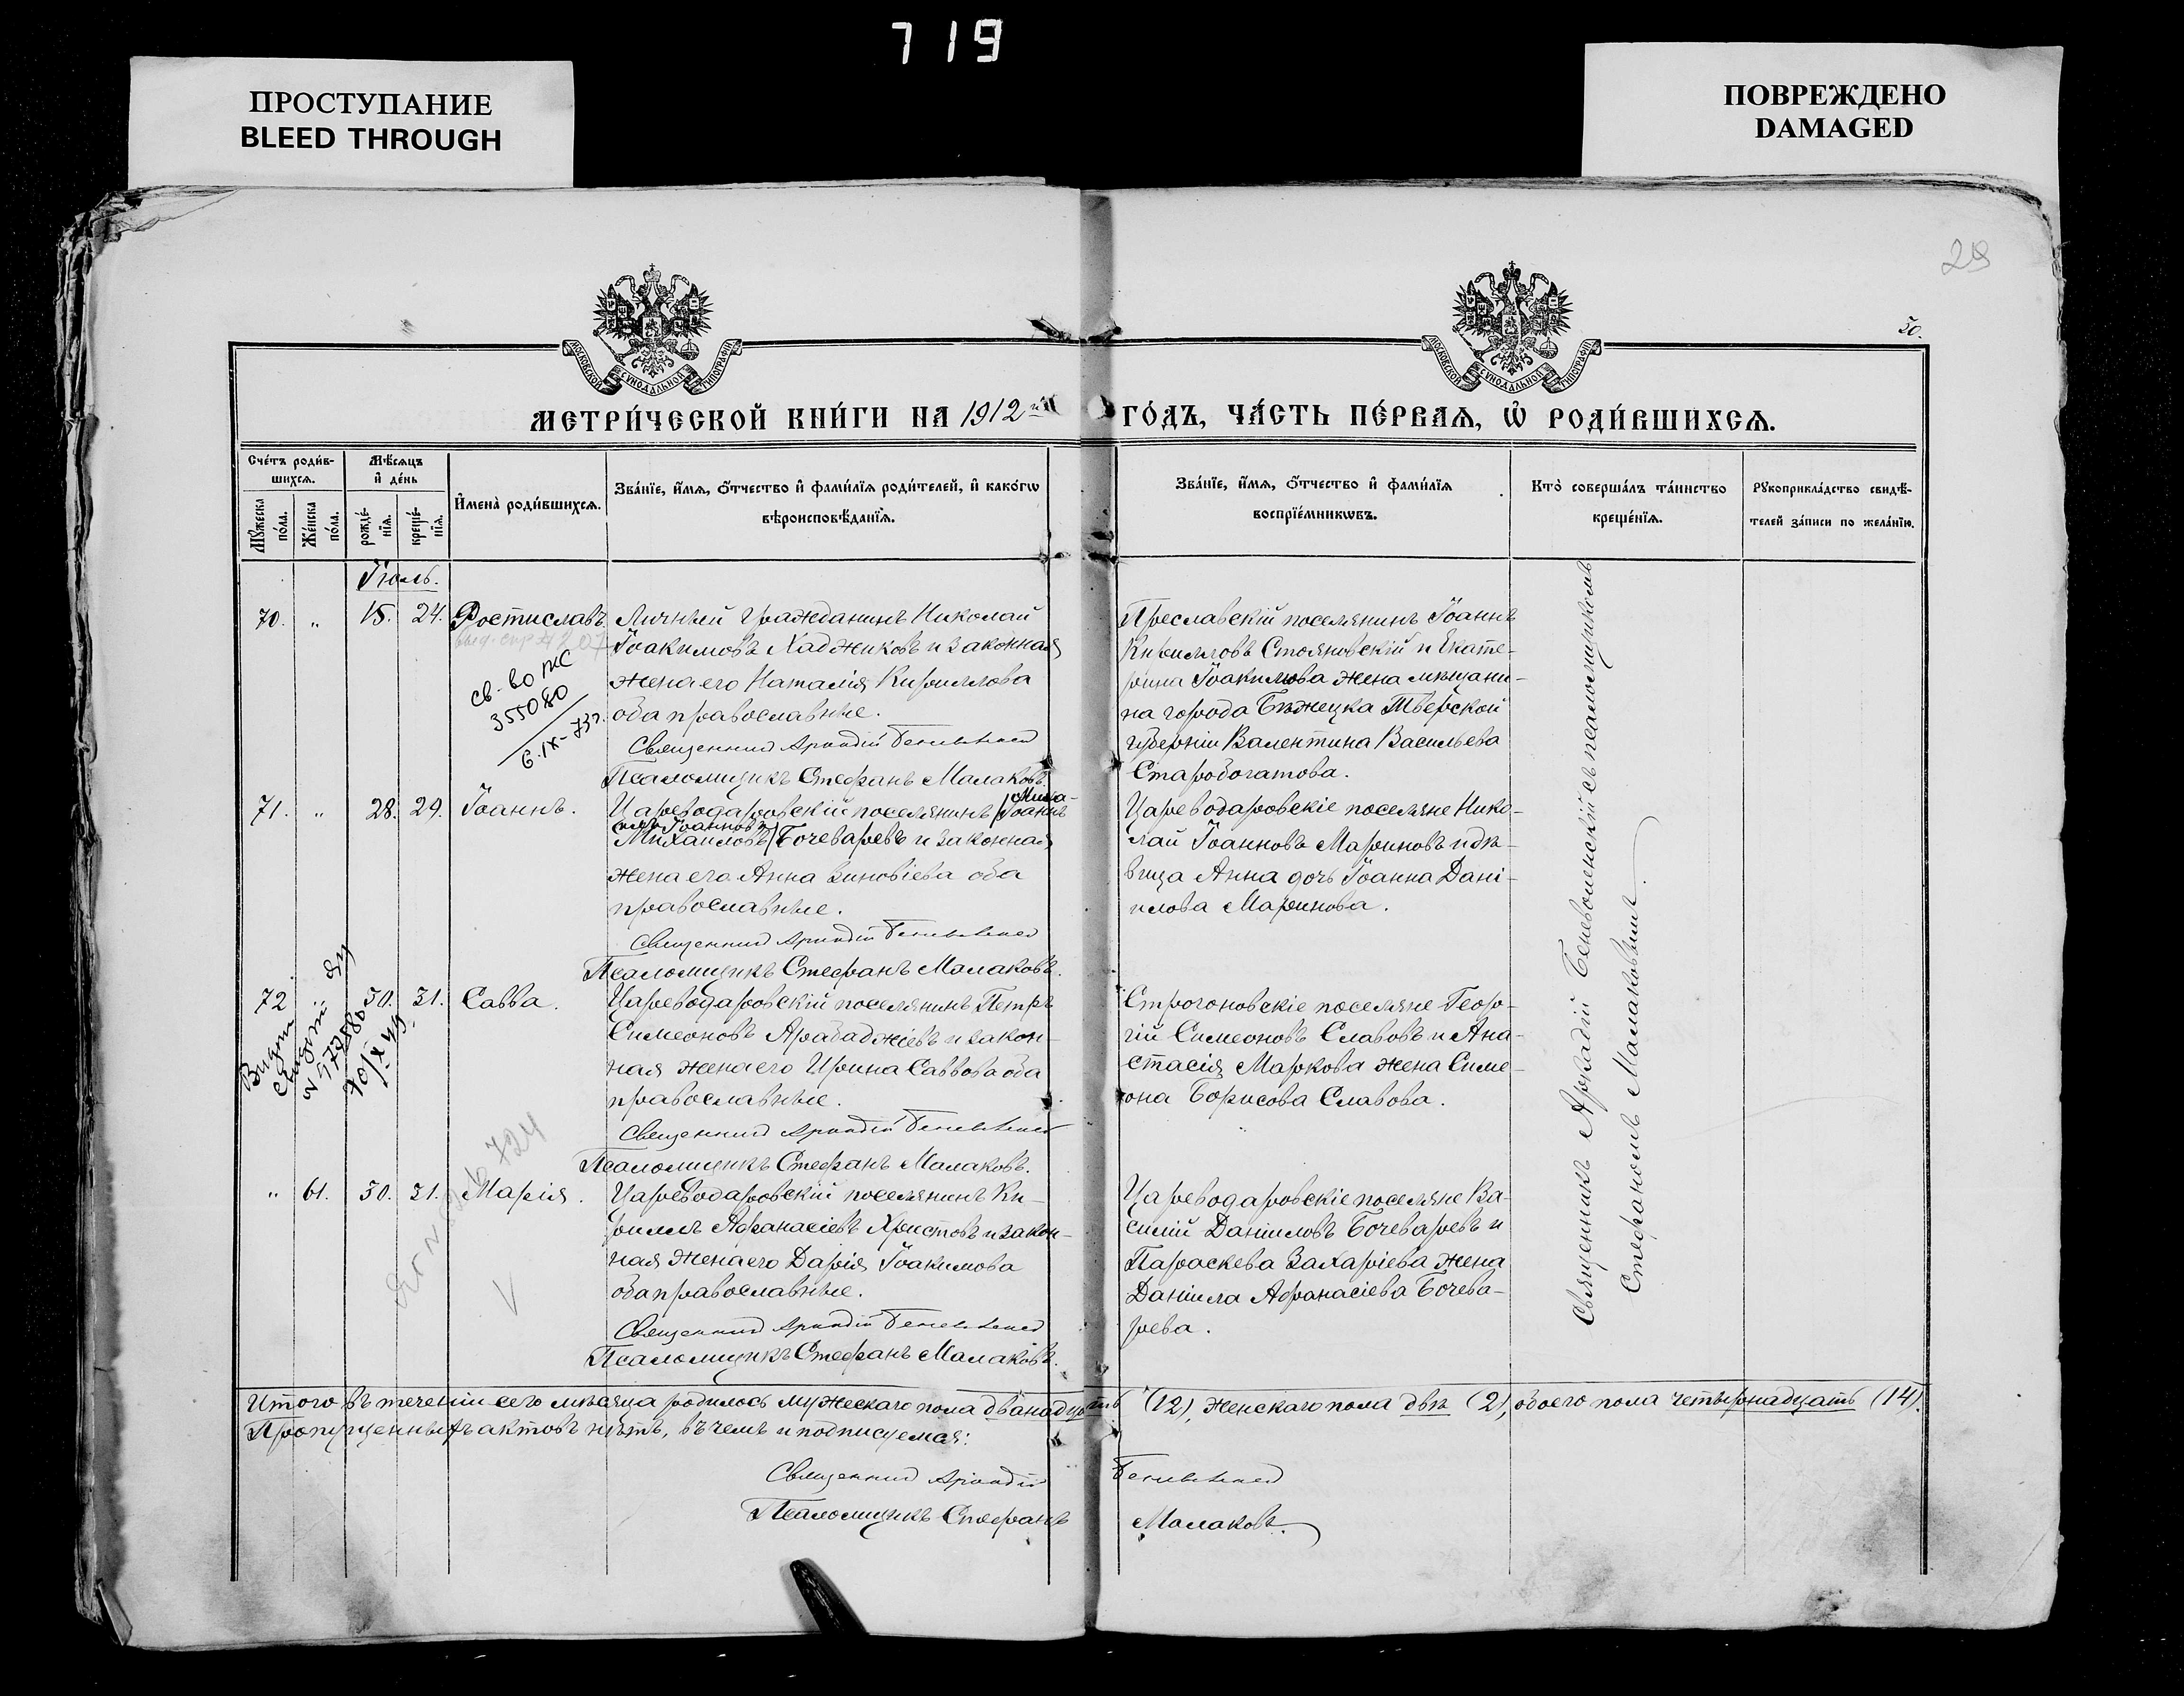 719
ПРОСТУПАНИЕ
BLEED THROUGH
ПОВРЕЖДЕНО
DAMAGED
29
50.
МОСКОВСКОЙ СѴНОДАЛЬНОЙ ТИПОГРАФІИ
МОСКОВСКОЙ СѴНОДАЛЬНОЙ ТИПОГРАФІИ
МЕТРИ́ЧЕСКОЙ КНИ́ГИ НА 1912й ГО́ДЪ, ЧА́СТЬ ПЕ́РВАѦ, Ѡ҆ РОДИ́ВШИХСѦ.
Сче́тъ роди́в-
шихсѧ.
Мѣ́сѧцъ
и҆ де́нь
Мꙋжеска по́ла.
Же́нска по́ла.
рожде́-
нїѧ.
креще́-
нїѧ.
И҆мена̀ роди́вшихсѧ.
Зва́нїе, и҆́мѧ, о҆́тчество и҆ фами́лїѧ роди́телей, и҆ како́гѡ
вѣроисповѣ́данїѧ.
Зва́нїе, и҆́мѧ, о҆́тчество и҆ фами́лїѧ
воспрїе́мникѡвъ.
Кто̀ соверша́лъ та́инство
креще́нїѧ.
Рꙋкоприкла́дство свидѣ́-
телей за́писи по жела́нїю.
Іюль.
70. " 15. 24. Ростиславъ
Личный гражданинъ Николай
Іоакимовъ Хаджиковъ и законная
жена его Наталія Кириллова
оба православные.
Священникъ Аркадій Беневоленскій
Псаломщикъ Стефанъ Малаковъ.
св-во ЖС
355080
6.IX-
Преславскій поселянинъ Іоаннъ
Кирилловъ Стояновскій и Екате-
рина Іоакимова жена мѣщани-
на города Бѣжецка Тверской
губерніи Валентина Васильева
Старобогатова.
71. " 28. 29. Іоаннъ.
Цареводаровскій поселянинъ /Іоаннъ
Миха-
илъ Іоанновъ
Михаиловъ/ Бочеваревъ и законная
жена его Анна Зиновіева оба
православные.
Священникъ Аркадій Беневоленскій
Псаломщикъ Стефанъ Малаковъ.
Цареводаровскіе поселяне Нико-
лай Іоанновъ Мариновъ и дѣ-
вица Анна дочь Іоанна Дані-
илова Маринова.
72 " 30. 31. Савва.
Цареводаровскій поселянинъ Петръ
Симеоновъ Арабаджіевъ и закон-
ная жена его Ирина Саввова оба
православные.
Священникъ Аркадій Беневоленскій
Псаломщикъ Стефанъ Малаковъ.
Строгоновскіе поселяне Геор-
гій Симеоновъ Славовъ и Ана-
стасія Маркова жена Симе-
она Борисова Славова.
" 61. 30. 31. Марія.
Цареводаровскій поселянинъ Ки-
риллъ Афанасіевъ Христовъ и закон-
ная жена его Дарія Іоакимова
оба православные.
Священникъ Аркадій Беневоленскій
Псаломщикъ Стефанъ Малаковъ.
Цареводаровскіе поселяне Ва-
силій Даніиловъ Бочеваревъ и
Параскева Захаріева жена
Даніила Афанасіева Бочева-
рева.
Священникъ Аркадій Беневоленскій съ псаломщикомъ
Стефаномъ Малаковымъ.
Итого въ теченіи сего мѣсяца родилось мужескаго пола двѣнадцать (12), женскаго пола двѣ (2), обоего пола четырнадцать (14).
Пропущенныхъ актовъ нѣтъ, въ чемъ и подписуемся:
Священникъ Аркадій Беневоленскій
Псаломщикъ Стефанъ Малаковъ.